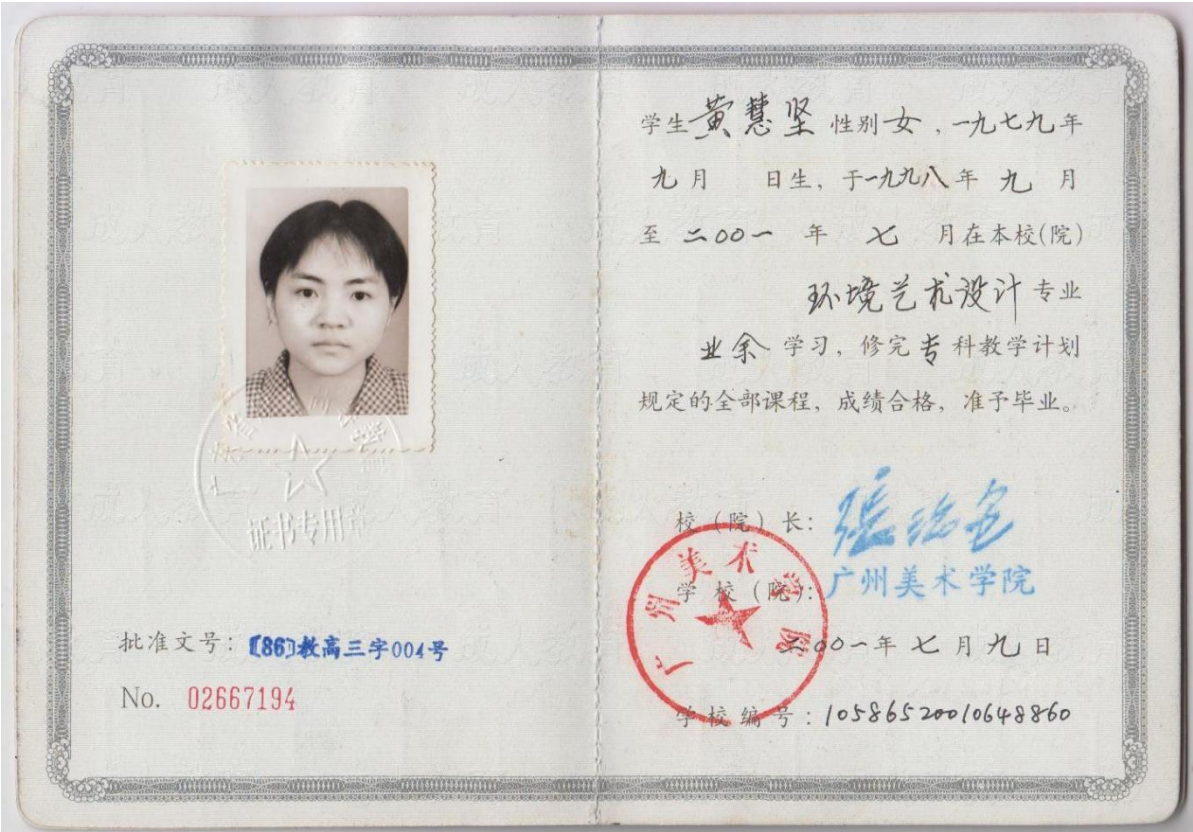 证书专用章
批准文号：〔86〕教高三字004号
No. 02667194
学生黄慧坚 性别女，一九七九年
九月 日生，于一九九八年 九 月
至 二00一 年 七 月在本校(院)
环境艺术设计 专业
业余 学习，修完专科教学计划
规定的全部课程，成绩合格，准予毕业。
校（院）长：
学校（院）：广州美术学院
广州美术学院
二00一年七月九日
学校编号：10586520010648860